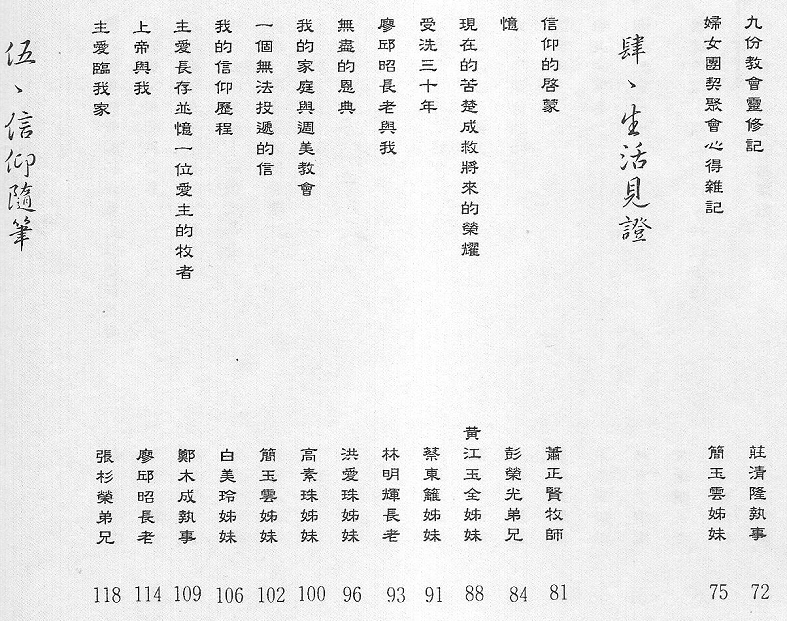 九份教會靈修記 莊清隆執事 72
婦女團契聚會心得雜記 簡玉雲姊妹 75
肆、生活見證
信仰的啓蒙 蕭正賢牧師 81
憶 彭榮光弟兄 84
現在的苦楚成救將來的榮耀 黃江玉金姊妹 88
受洗三十年 蔡東籬姊妹 91
廖邱昭長老與我 林明輝長老 93
無盡的恩典 洪愛珠姊妹 96
我的家庭與週美教會 高素珠姊妹 100
一個無法投遞的信 簡玉雲姊妹 102
我的信仰歷程 白美玲姊妹 106
主愛長存並憶一位愛主的牧者 鄭木成執事 109
上帝與我 廖邱昭長老 114
主愛臨我家 張杉榮弟兄 118
伍、信仰隨筆